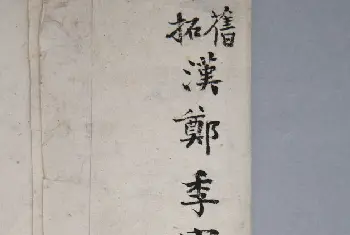 舊拓
漢鄭季